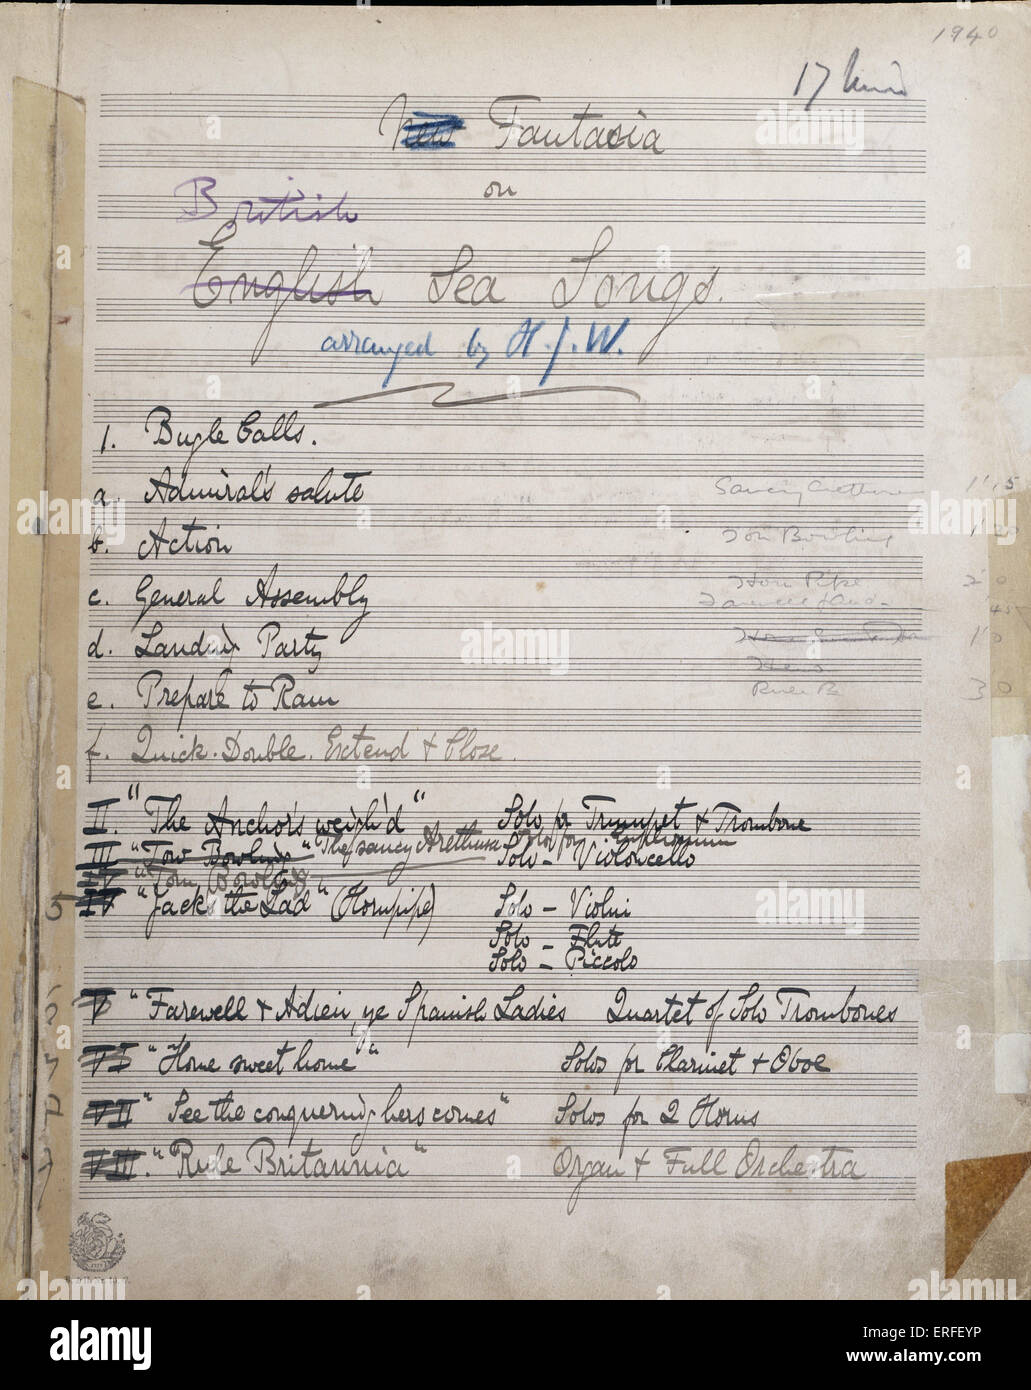 1940
17 mins
New Fantasia
on
British
English Sea Songs.
arranged by H.J.W.
1. Bugle Calls.
a. Admiral's salute
Saucy Arethusa 1'15
b. Action
Tom Bowling
c. General Assembly
Horn Pipe 2'0
Farewell 45
d. Landing Party
Home 1'0
e. Prepare to Ram
Hero
Rule B 3 0
f. Quick. Double. Extend & Close.
II. "The Anchor's weigh'd" Solo for Trumpet & Trombone
III "Tom Bowling" "The saucy Arethusa" Solo for Euphonium
Solo - Violoncello
IV "Tom Bowling"
5 IV "Jack's the Lad" (Hornpipe) Solo - Violin
Solo - Flute
Solo - Piccolo
V "Farewell & Adieu, ye Spanish Ladies Quartet of Solo Trombones
VI "Home sweet home" Solos for Clarinet & Oboe
VII "See the conquering hero comes" Solos for 2 Horns
VIII. "Rule Britannia" Organ & Full Orchestra
alamy
Image ID: ERFEYP
www.alamy.com
alamy stock photo